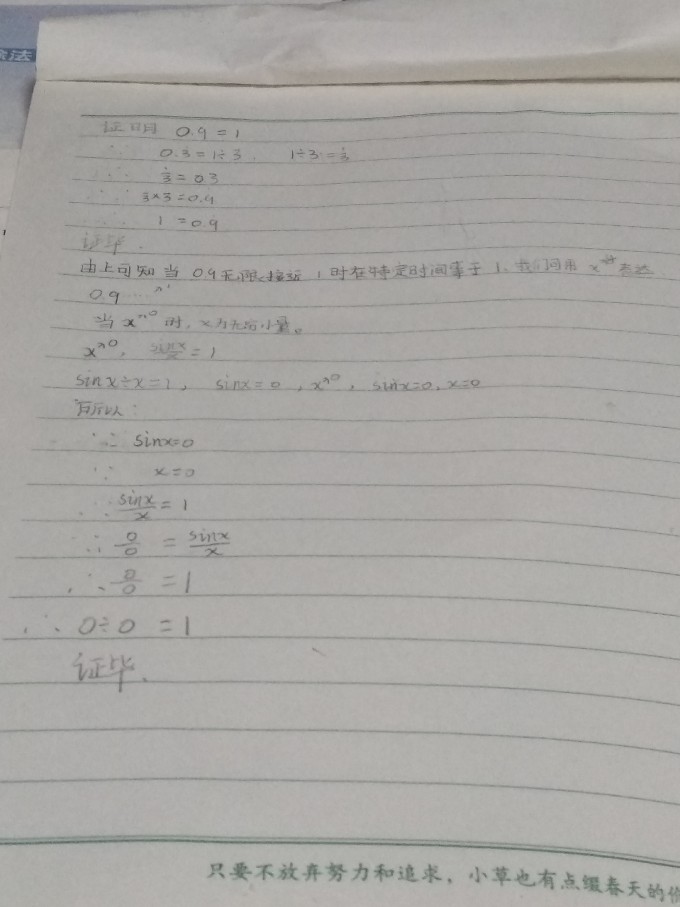 除法
证明 0.9=1
∵ 0.3̇=1÷3. 1÷3=⅓
∴ ⅓=0.3
∴ ⅓×3=0.9
∴ 1=0.9
证毕.
由上可知当 0.9无限接近 1 时在特定时间等于 1. 我们可用 表达
0.9
当 x^→0 时, x为无穷小量。
x^→0, sinx/x=1
sinx÷x=1, sinx=0, x^→0, sinx=0, x=0
所以:
∵ sinx=0
∵ x=0
∴ sinx/x=1
∵ 0/0 = sinx/x
∴ 0/0 =1
∴ 0÷0 =1
证毕.
只要不放弃努力和追求，小草也有点缀春天的价